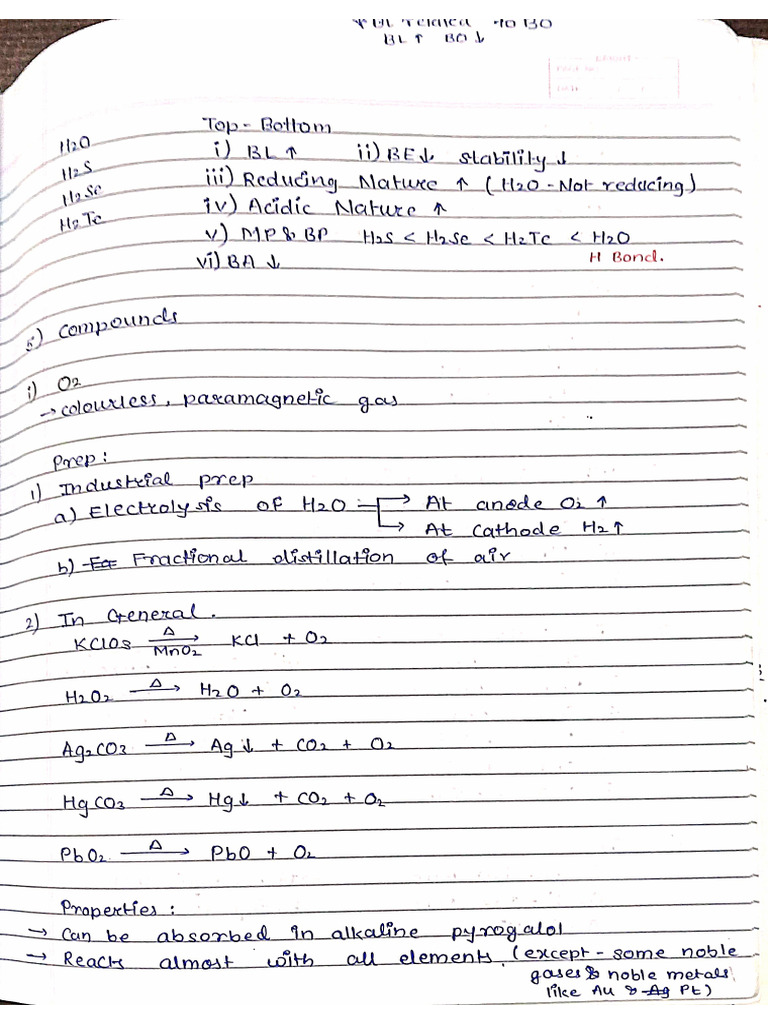 * BL related to BO
BL↑ BO↓
Top - Bottom
H2O
i) BL ↑ ii) BE↓ stability ↓
H2S
iii) Reducing Nature ↑ (H2O - Not reducing)
H2Se
iv) Acidic Nature ↑
H2Te
v) MP & BP H2S < H2Se < H2Te < H2O
vi) BA ↓ H Bond.
5) Compounds
i) O2
→ colourless, paramagnetic gas
Prep:
1) Industrial prep
a) Electrolysis of H2O → At anode O2 ↑
→ At cathode H2↑
b) Fractional distillation of air
2) In General.
KClO3 —Δ/MnO2→ KCl + O2
H2O2 —Δ→ H2O + O2
Ag2CO3 —Δ→ Ag↓ + CO2 + O2
HgCO3 —Δ→ Hg↓ + CO2 + O2
PbO2 —Δ→ PbO + O2
Properties:
→ Can be absorbed in alkaline pyrogalol
→ Reacts almost with all elements (except - some noble
gases & noble metals
like Au & Ag Pt)